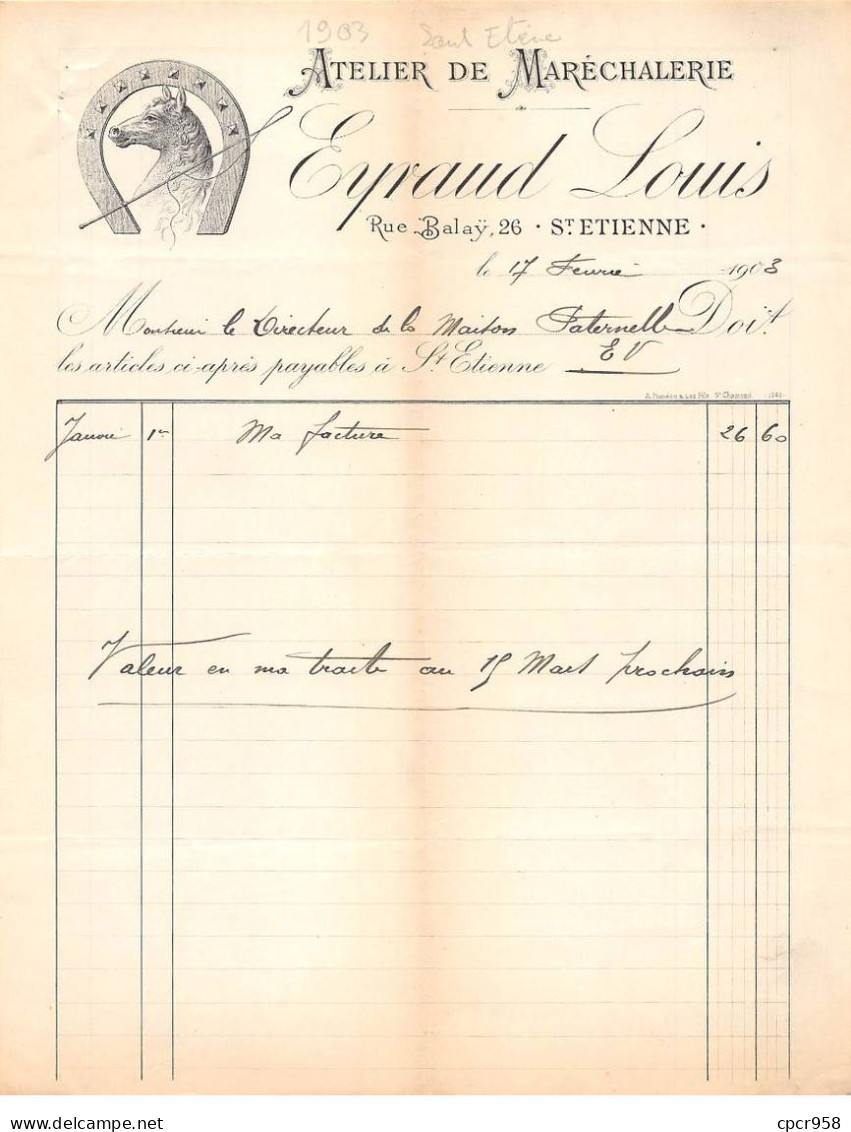 1903 Saint Etiene
ATELIER DE MARÉCHALERIE
Eyraud Louis
Rue Balaÿ, 26 · ST ETIENNE ·
le 17 Fevrié 1903
Monsieur le Directeur de la Maison Paternelle Doit
les articles ci-après payables à St Etienne EV
St Chamond
Janvié 1er Ma facture 26 60
Valeur en ma traite au 15 Mars prochain
cpcr958